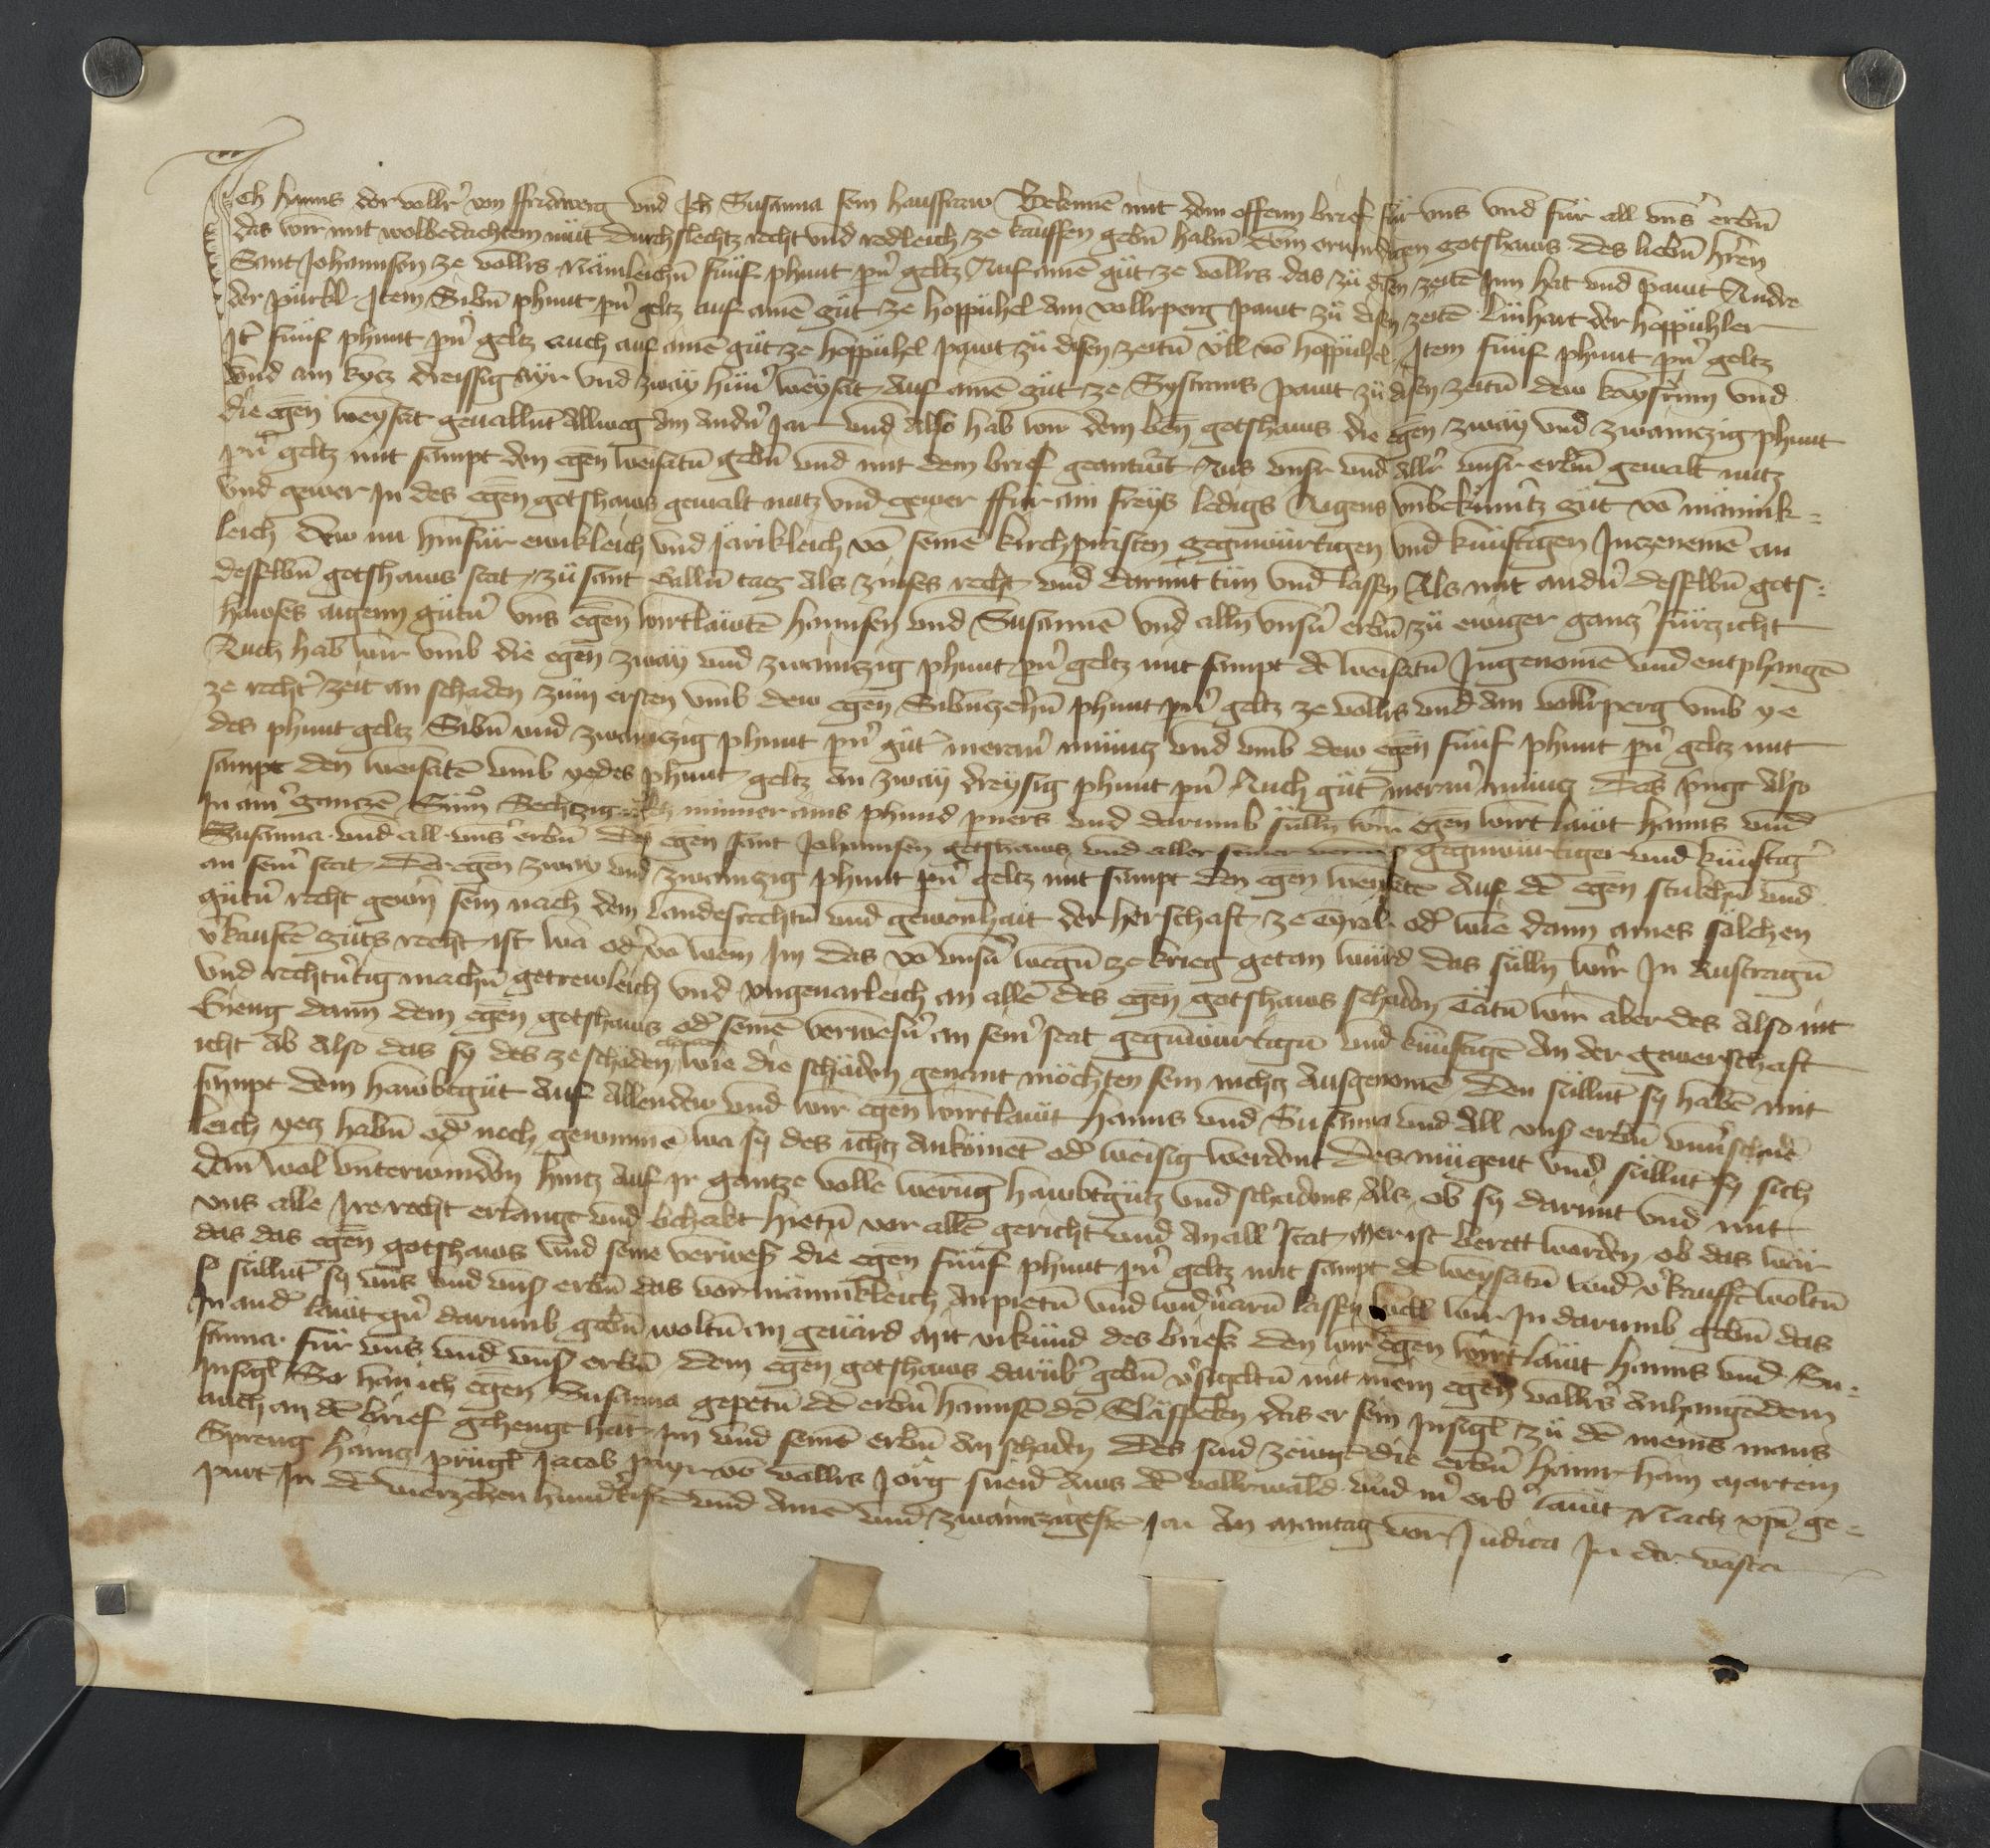 Ich Hanns der vollr̄ von ffridwerg vnd Ich Susanna sein hausfraw Bekenne mit dem offenn brief für vns vnd für all vns̄ erbn̄
das wir mit wolbedachtem müt durchslechtz recht vnd redleich ze kauffen gebn̄ habn̄ dem erwirdigen gotshaws des liebn̄ hrn̄
Sant Johannsen ze vollrs Nämleichn̄ fünf phunt pn̄ geltz Auf aine güt ze vollrs das zü disen zeite Inn hat vnd pawt Andre
der pürkl Item Sibn̄ phunt pn̄ geltz auf aine güt ze hoppühel am vollrperg pawt zü disn zeite Linhart der hoppühler
It̄ fünf phunt pn̄ geltz auch auf aine güt ze hoppühel pawt zü disen zeitn̄ vll vō hoppühel Item fünf phunt pn̄ geltz
vnd ain kycz dreissig ayr vnd zway hün̄ weysat auf aine güt ze Systrans pawt zü disen zeitn̄ dew kaysrinn vnd
die egen̄ weysat geuallnt allweg am andn̄ Jar vnd also hab wir dem ben̄ gotshaws die egen̄ zway vnd zwainczig phunt
pn̄ geltz mit sampt den egen̄ weisatn̄ gebn̄ vnd mit dem brief geantwrt Aus vnsr vnd allr̄ vnsr erbn̄ gewalt nutz
vnd gewer In des egen̄ gotshaws gewalt nutz vnd gewer ffür ain freys ledigs Aigens vnbekümrtz güt vō mänik=
leich dew nu hinfür ewikleich vnd järikleich vō seine kirchpräbsten gegenwürtigen vnd künftigen Inczeneme an
desselbn̄ gotshaws stat zü sant Galln̄ tag als zinses recht vnd darmit tün vnd lassen Als mit andn̄ desselbn̄ gots=
hawses aigenn gütn̄ vns egen̄ wirtläwte hannsen vnd Susanne vnd alln̄ vnsn̄ erbn̄ zü ewiger gancz̄ fürzicht
Auch hab wir vmb die egen̄ zway vnd zwainczig phunt pn̄ geltz mit sampt dē weisatn̄ Ingenome vnd entphange
ze recht̄ zeit an schaden zum ersten vmb dew egen̄ Sibnczehn̄ phunt pn̄ geltz ze vollrs vnd am vollrperg vmb ye
des phunt geltz Sibn̄ vnd zwainczig phunt pn̄ güt̄ meran̄ müncz vnd vmb dew egen̄ fünf phunt pn̄ geltz mit
sampt den weisate vmb yedes phunt geltz an zway dreysig phunt pn̄ Auch güt̄ meran̄ müncz Des pringt also
In ain̄ gancze Sum̄ minner ains phund perners vnd darumb sülln̄ wir egen̄ wirtläwt Hanns vnd
Susanna vnd all vns̄ erbn̄ des egen̄ sant Johannsen gotshaws vnd aller seiner gegenwürtiger vnd künftiḡ
an sein̄ stat Der egen̄ zway vnd zwainczig phunt pn̄ geltz mit sampt den egen̄ weysate Auf dē egen̄ stukchn̄ vnd
gütn̄ recht gewern̄ sein nach dem Landesrechtn̄ vnd gewonhait der herschaft ze Tyrol od̄ wie dann aines sölchen
v̄kaufte güts recht ist wa od̄ vō wem Im das vō vnsn̄ wegn̄ ze krieg getan würd das sülln̄ wir In Austragn̄
vnd rechtv̄tig machn̄ getrewleich vnd vngeuarleich an alle des egen̄ gotshaws schaden Tätn̄ wir aber des also nit
Gieng dann dem egen̄ gotshaws od̄ seine verwesn̄ an sein̄ stat gegenwürtign̄ vnd künftige an der gewerschaft
icht ab also das sy des ze schäden wie die schäden genant möchten sein nichtz Ausgenome Den süllnt sy habe mit
sampt dem hawbtgüt Auf Allendew vnd wir egen̄ wirtläwt Hanns vnd Susanna vnd All vns̄ erbn̄ vnuschaide
leich yecz habn̄ od̄ noch gewinne wa sy des ichtz ankömet od̄ weisig werdent Des mügent vnd süllnt sy sich
dan̄ wol vnterwinden hintz auf ir gantze volle werung hawbtgütz vnd schadens Als ob sy darmit vnd mit
vns alle Ire recht erlangt vnd behabt hietn̄ vor alle gericht vnd An all stat Mer ist berett worden ob das wär
das das egen̄ gotshaws vnd seine verwes̄ die egen̄ fünf phunt pn̄ geltz mit sampt dē weysatn̄ wid̄ v̄kauffe woltn̄
so süllnt sy vns vnd vns̄ erbn̄ das vor mänikleich Anpietn̄ vnd widv̄arn̄ lassen well wir In darumb gebn̄ das
In and̄ läwt gn̄ darumb gebn̄ woltn̄ an geuärd Mit vrkünd des briefs den wir egen̄ wirtläwt Hanns vnd Su=
sanna für vns vnd vns̄ erbn̄ dem egen̄ gotshaws darüb̄ gebn̄ v̄sigeltn̄ mit mein egen̄ vollrs̄ anhangedem
Insigl So han ich egen̄ Susanna gepetn̄ dē erbn̄ hannse dē Släspeken das er sein Insigl zü dē meins mans
auch an dē brief gehengt hat Im vnd seine erbn̄ an schaden Des sind zewge die erbn̄ hainr̄ haim Martein
Spreng hainz prügl Jacob payr vō vollrs Jörg sneid̄ Aws dē vollrwald vnd m̄ erb̄ läwt Nach xpī ge=
purt In dē vierzehen hundtiste vnd Aine vnd zwainczigiste Jar An Mantag vor Judica In der vasten